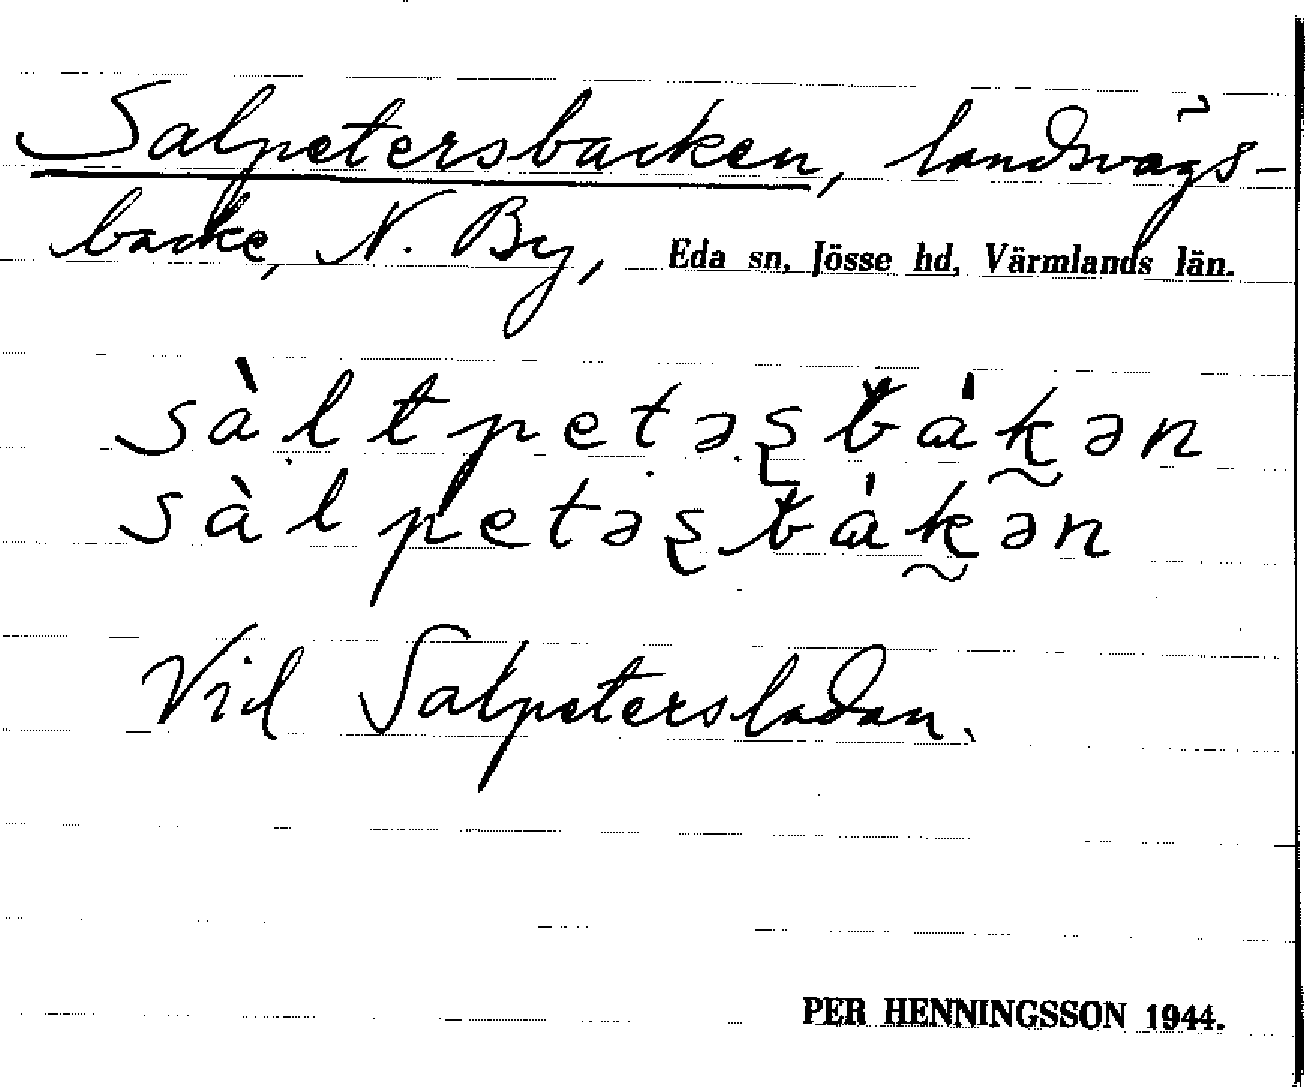 Salpetersbacken, landsvägs-
backe, N. By, Eda sn, Jösse hd, Värmlands län.
sàltpetəʂbákən
sàlpetəʂbákən
Vid Salpetersladan.
PER HENNINGSSON 1944.